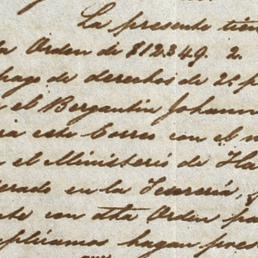 La presente tien
la Orden de $12.349. 2.
pago de derechos de 2.º p
n el Bergantin Johann
ria este Correo con el n
n el Ministerio de Ha
erado en la Tesoreria,
te con esta Orden pa
hagan pres